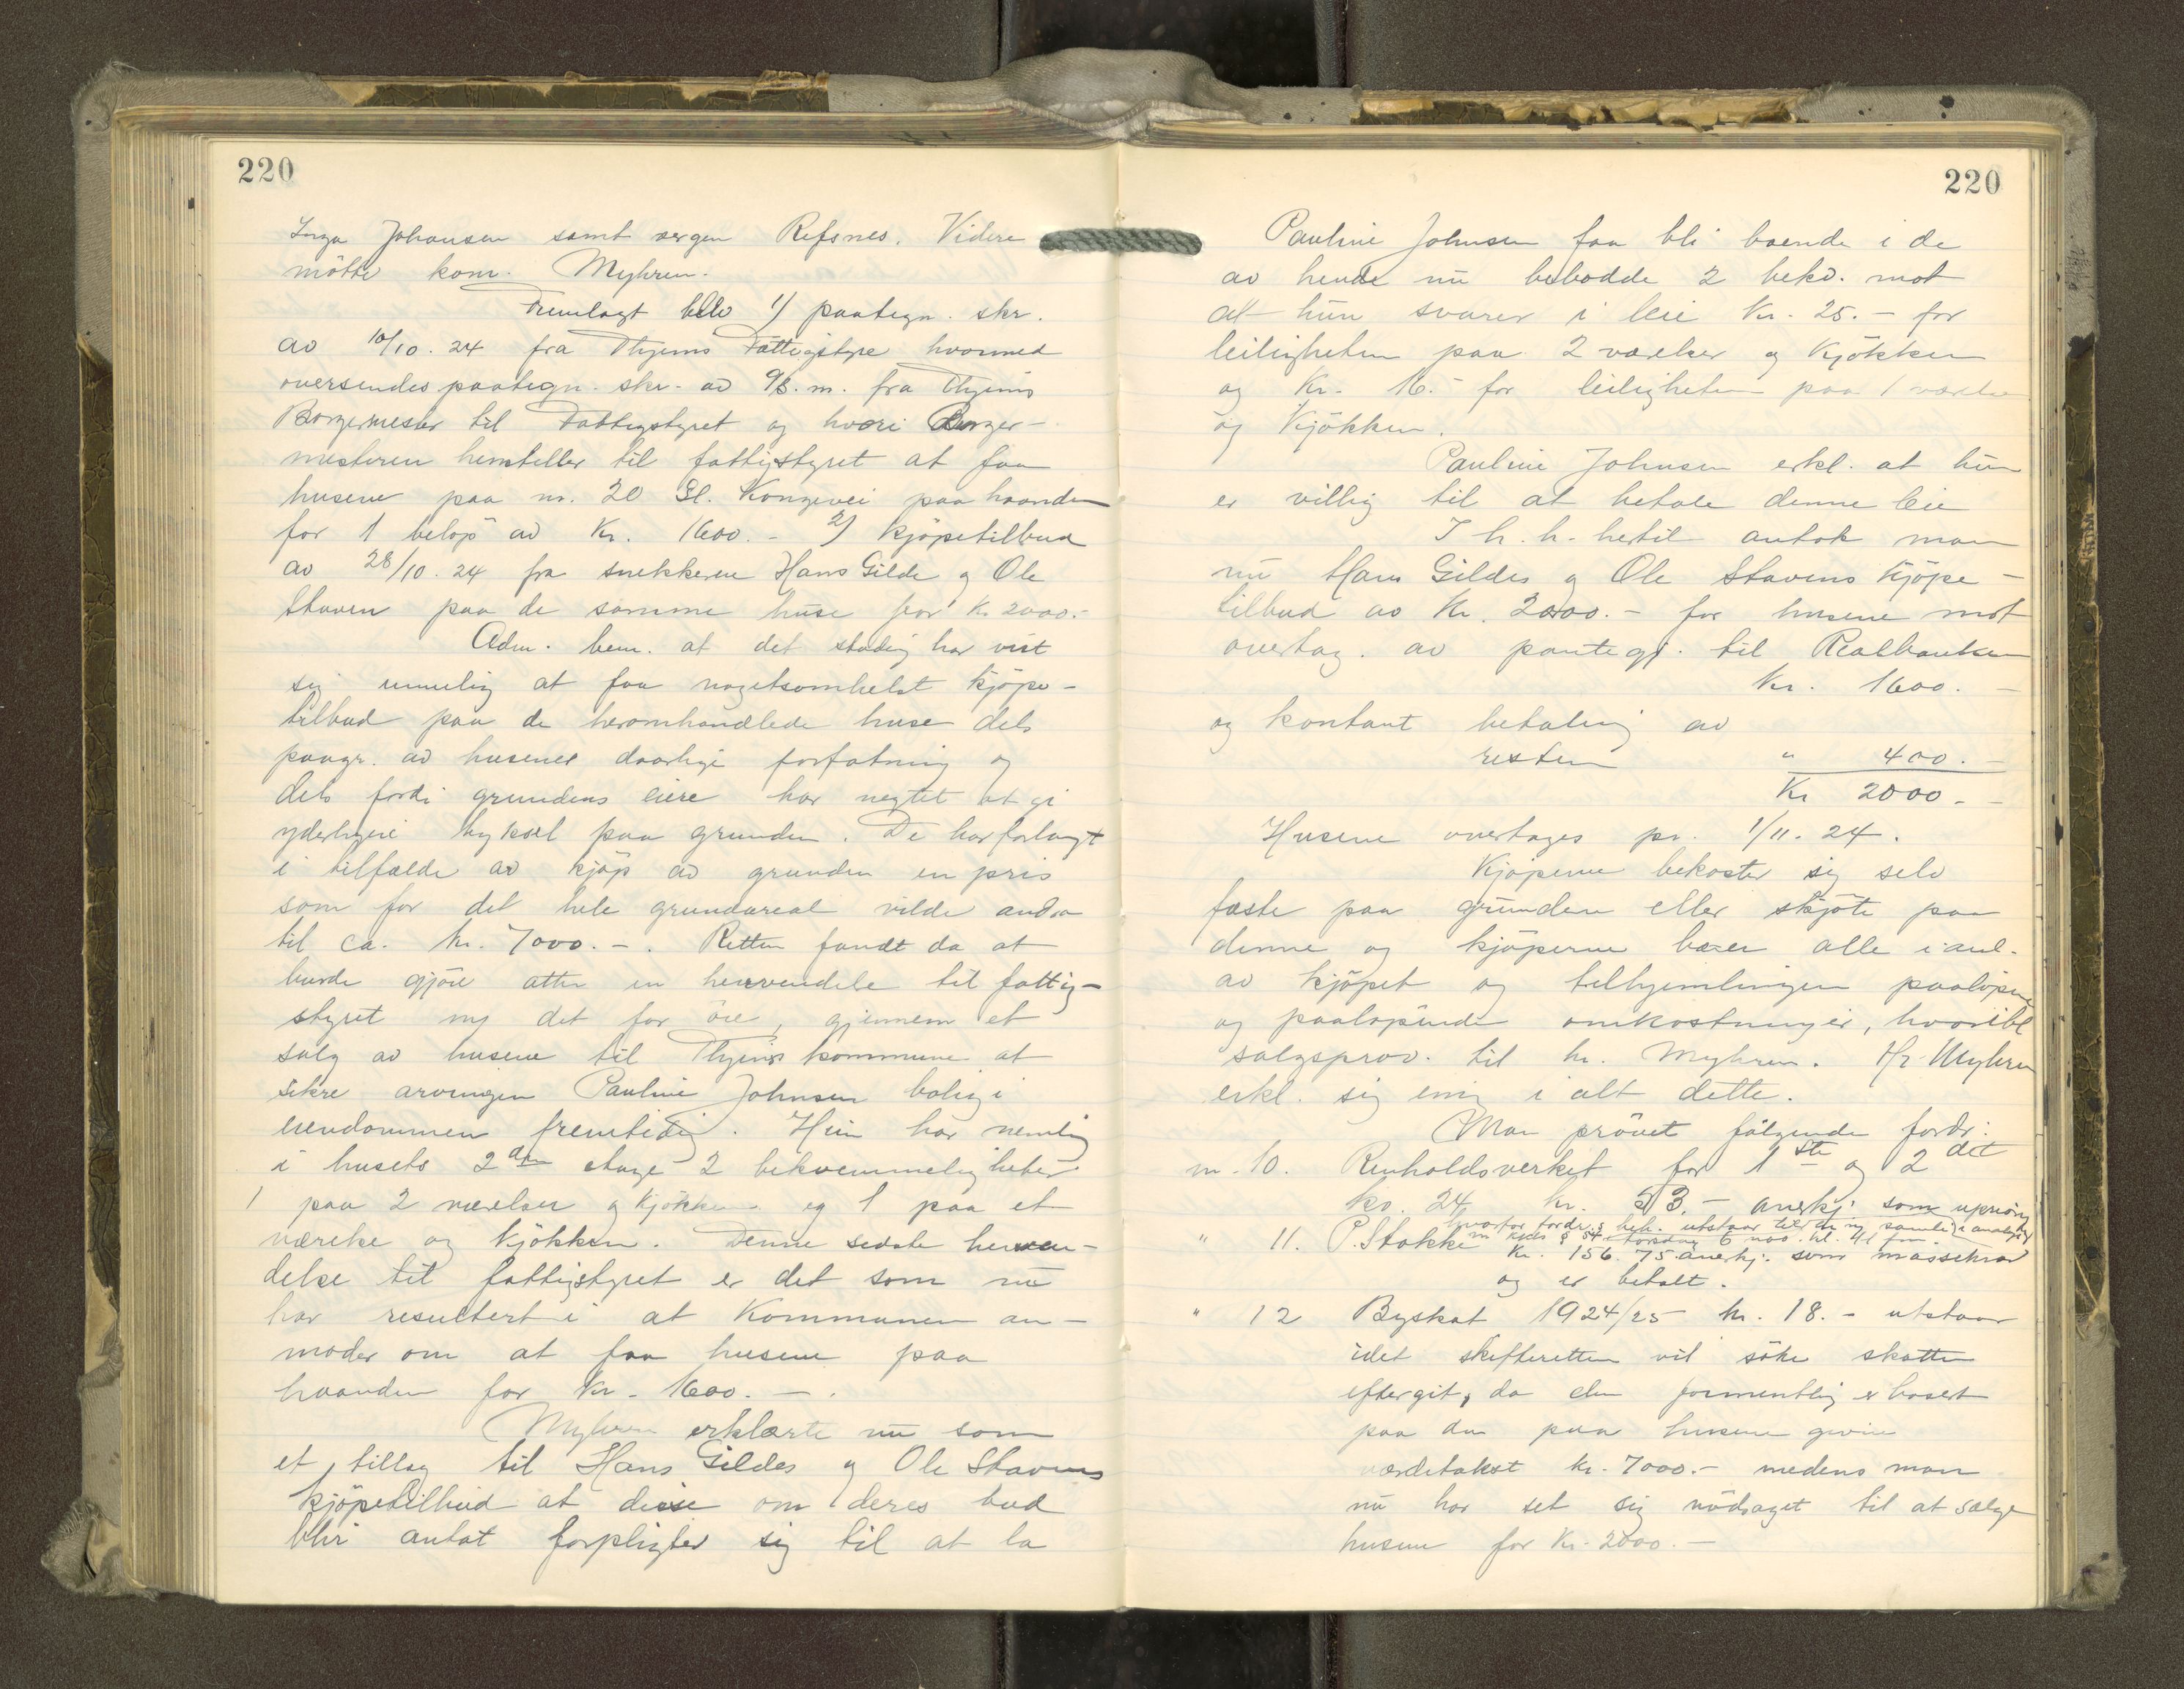 220
Inga Johansen samt vergen Refsnes. Videre
mötte kom. Myhren.
Fremlagt blev 1) paategn. skr.
av 10/10. 24 fra Thjems Fattigstyre hvormed
oversendes paategn. skr. av 9/s. m. fra Thjems
Borgermester til Fattigstyret og hvori Borger-
mesteren henstiller til fattigstyret at faa
husene paa nr. 20 Gl. Kongevei paa haanden
for 1 belöp av Kr. 1600.- 2) kjöpetilbud
av 28/10. 24 fra snekkerne Hans Gilde og Ole
Staven paa de samme huse for Kr. 2000.-
Adm. bem. at det stadig har vist
sig umulig at faa nogetsomhelst kjöpe-
tilbud paa de heromhandlede huse dels
paagr. av husenes daarlige forfatning og
dels fordi grundens eiere har negtet at gi
yderligere byksel paa grunden. De har forlangt
i tilfælde av kjöp av grunden en pris
som for det hele grundareal vilde andra
til ca. kr. 7000.-. Retten fandt da at
burde gjöre atter en henvendelse til fattig-
styret m/ det for öie, gjennem et
salg av husene til Thjems kommune at
sikre arvingen Pauline Johnsen bolig i
eiendommen fremtidig. Hun har nemlig
i husets 2den etage 2 bekvemmeligheter
1 paa 2 værelser og kjökken og 1 paa et
værelse og kjökken. Denne sidste henven-
delse til fattigstyret er det som nu
har resultert i at Kommunen an-
moder om at faa husene paa
haanden for Kr. 1600.-.
Myhren erklærte nu som
et tillæg til Hans Gildes og Ole Stavens
kjöpetilbud at disse om deres bud
blir antat forpligter sig til at la
220
Pauline Johnsen faa bli boende i de
av hende nu bebodde 2 bekv. mot
at hun svarer i leie Kr. 25.- for
leiligheten paa 2 værelser og Kjökken
og Kr. 16.- for leiligheten paa 1 værelse
og Kjökken.
Pauline Johnsen erkl. at hun
er villig til at betale denne leie
I h. h. hertil antok man
nu Hans Gildes og Ole Stavens kjöpe-
tilbud av Kr. 2000.- for husene mot
overtag. av pantegj. til Realbanken
Kr. 1600.-
og kontant betaling av
resten " 400.-
Kr 2000.-
Husene overtages pr. 1/11. 24.
Kjöperne bekoster sig selv
fæste paa grunden eller skjöte paa
denne og kjöperne bærer alle i anl.
av kjöpet og tilhjemlingen paalöpne
og paalöpende omkostninger, hvoribl
salgsprov. til hr. Myhren. Hr. Myhren
erkl. sig enig i alt dette.
Man prövet fölgende fordr:
nr. 10. Renholdsverket for 1ste og 2det
kv. 24 kr. 53.- anerkj. som uprior
hvorfor fordr.s beh. utstaar til
" 11. P. Stokke
Kr. 156.75 anerkj. som massekrav
og er betalt.
" 12 Byskat 1924/25 kr. 18.- utstaar
idet skifteretten vil söke skatten
eftergit, da den formentlig er basert
paa den paa husene givne
værditakst kr. 7000.- medens man
nu har set sig nödsaget til at sælge
husene for Kr. 2000.-